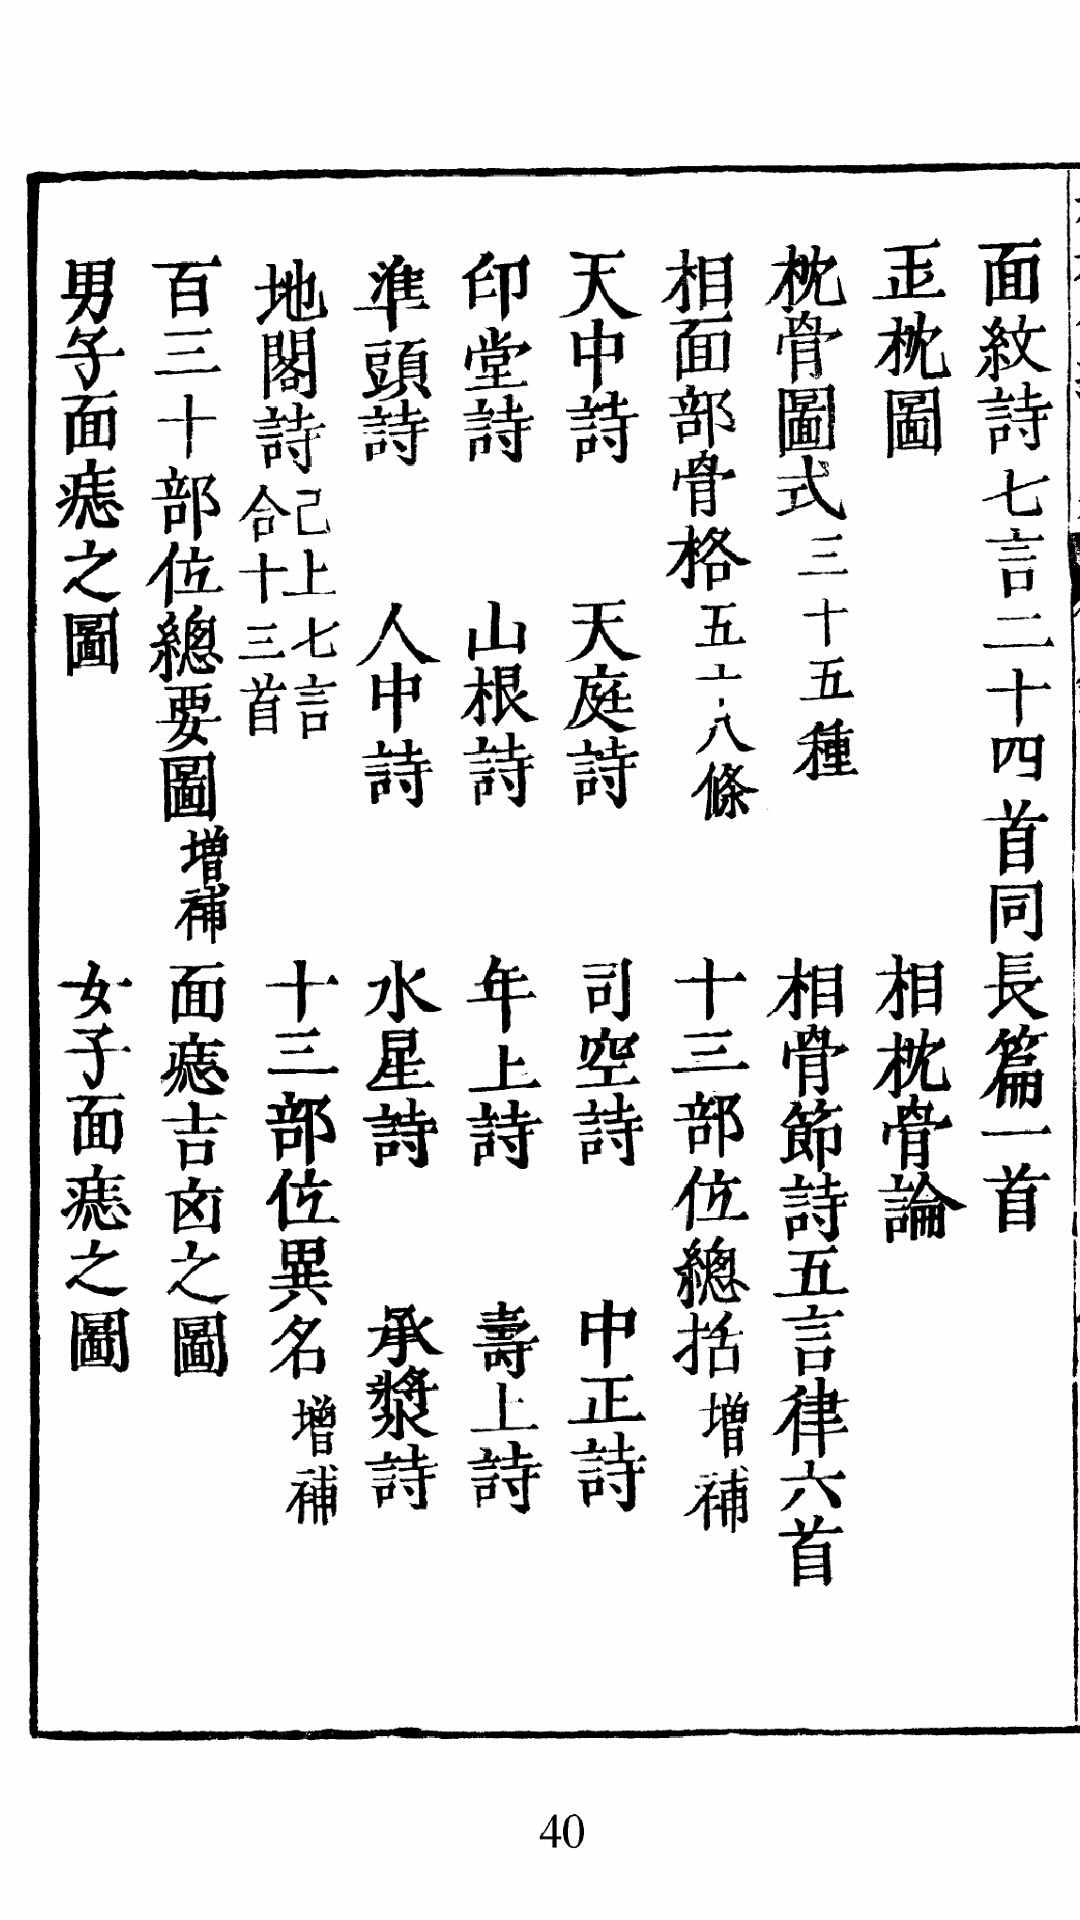 面紋詩七言二十四首同長篇一首
正枕圖　相枕骨論
枕骨圖式三十五種　相骨節詩五言律六首
相面部骨格五十八條　十三部位總括增補
天中詩　天庭詩　司空詩　中正詩
印堂詩　山根詩　年上詩　壽上詩
準頭詩　人中詩　水星詩　承漿詩
地閣詩已上七言合十三首　十三部位異名增補
百三十部位總要圖增補　面痣吉凶之圖
男子面痣之圖　女子面痣之圖
40